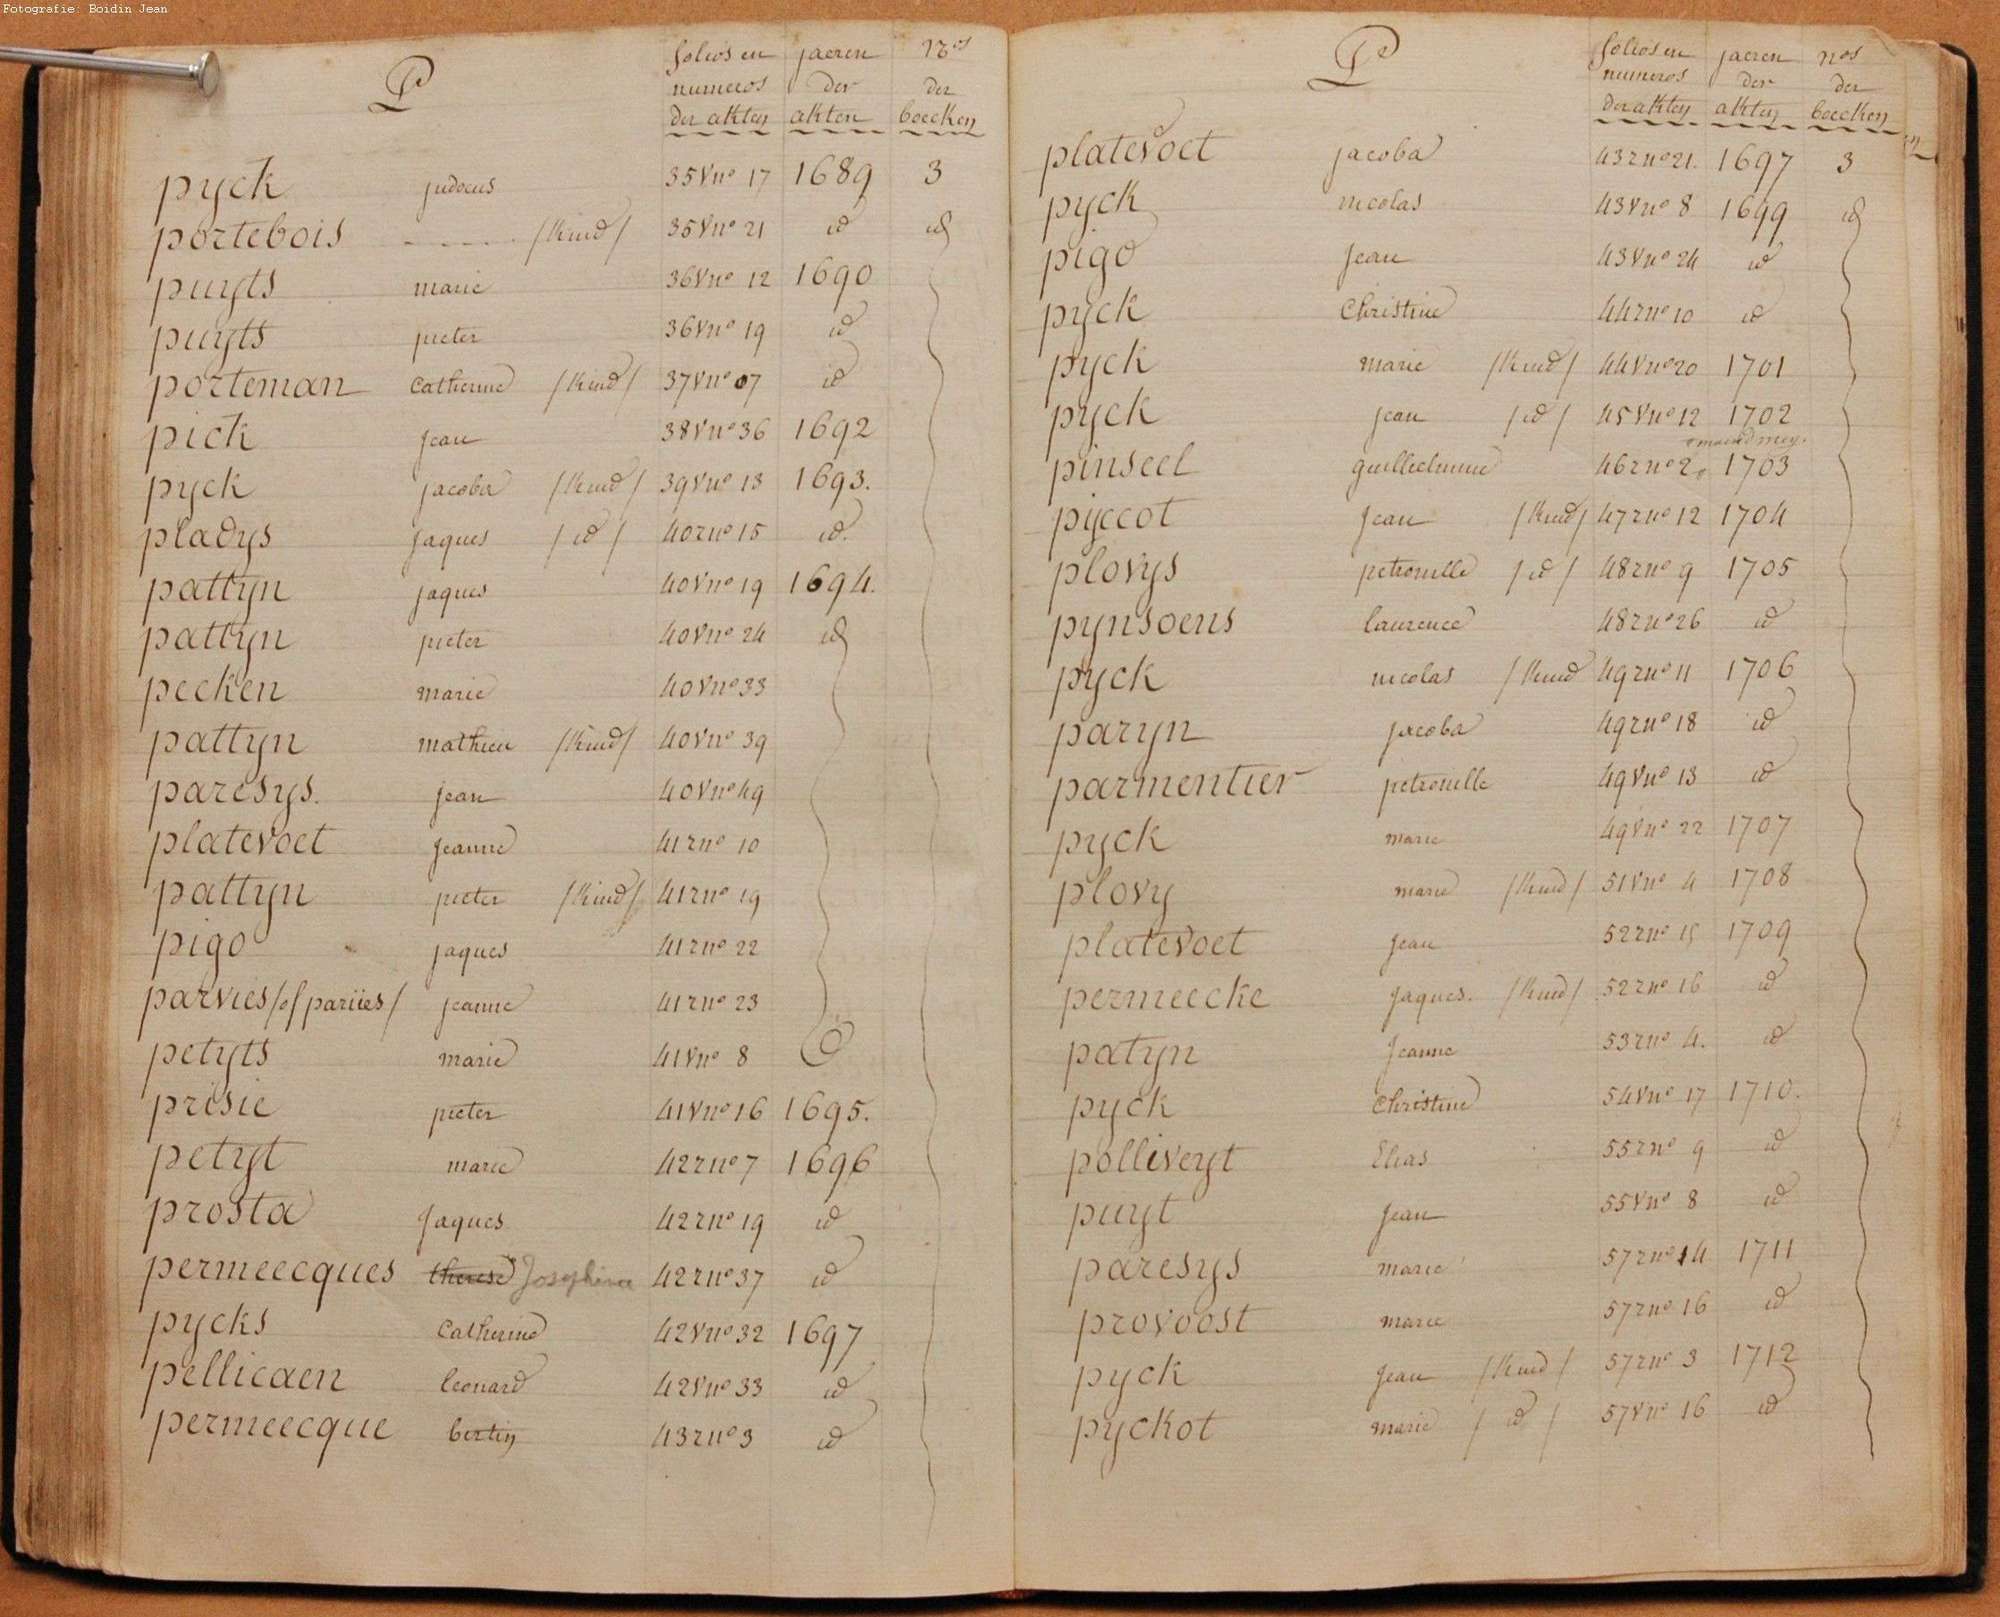 Fotografie: Boidin Jean
P
folios en numeros der akten jaeren der akten nos der boecken
pyck judocus 35 V no 17 1689 3
portebois - - - - - /kind/ 35 V no 21 id id
puyts marie 36 V no 12 1690
puyts pieter 36 V no 19 id
porteman catherine /kind/ 37 V no 07 id
pick jean 38 V no 36 1692
pyck jacoba /kind/ 39 V no 13 1693.
pladys jaques /id/ 40 r no 15 id.
pattyn jaques 40 V no 19 1694.
pattyn pieter 40 V no 24 id
pecken marie 40 V no 33
pattyn mathieu /kind/ 40 V no 39
paresys. jean 40 V no 49
platevoet jeanne 41 r no 10
pattyn pieter /kind/ 41 r no 19
pigo jaques 41 r no 22
parvies /of pariies/ jeanne 41 r no 23
petyts marie 41 V no 8
prisie pieter 41 V no 16 1695.
petyt marie 42 r no 7 1696
prosta jaques 42 r no 19 id
permeecques therese Josephine 42 r no 37 id
pycks catherine 42 V no 32 1697
pellicaen leonard 42 V no 33 id
permeecque bertin 43 r no 3 id
P
folios en numeros der akten jaeren der akten nos der boecken
platevoet jacoba 43 r no 21. 1697 3
pyck nicolas 43 V no 8 1699 id
pigo jean 43 V no 24 id
pyck christine 44 r no 10 id
pyck marie /kind/ 44 V no 20 1701
pyck jean /id/ 45 V no 12 1702
pinseel guillielmine 46 r no 2 1703
pyccot jean /kind/ 47 r no 12 1704
plovys petronille /id/ 48 r no 9 1705
pynsoens laurence 48 r no 26 id
pyck nicolas /kind 49 r no 11 1706
paryn jacoba 49 r no 18 id
parmentier petronille 49 V no 13 id
pyck marie 49 V no 22 1707
plovy marie /kind/ 51 V no 4 1708
platevoet jean 52 r no 15 1709
permeecke jaques. /kind/ 52 r no 16 id
patyn jeanne 53 r no 4. id
pyck christine 54 V no 17 1710.
polliveyt Elias 55 r no 9 id
puyt jean 55 V no 8 id
paresys marie 57 r no 14 1711
provoost marie 57 r no 16 id
pyck jean /kind/ 57 r no 3 1712
pyckot marie /id/ 57 V no 16 id